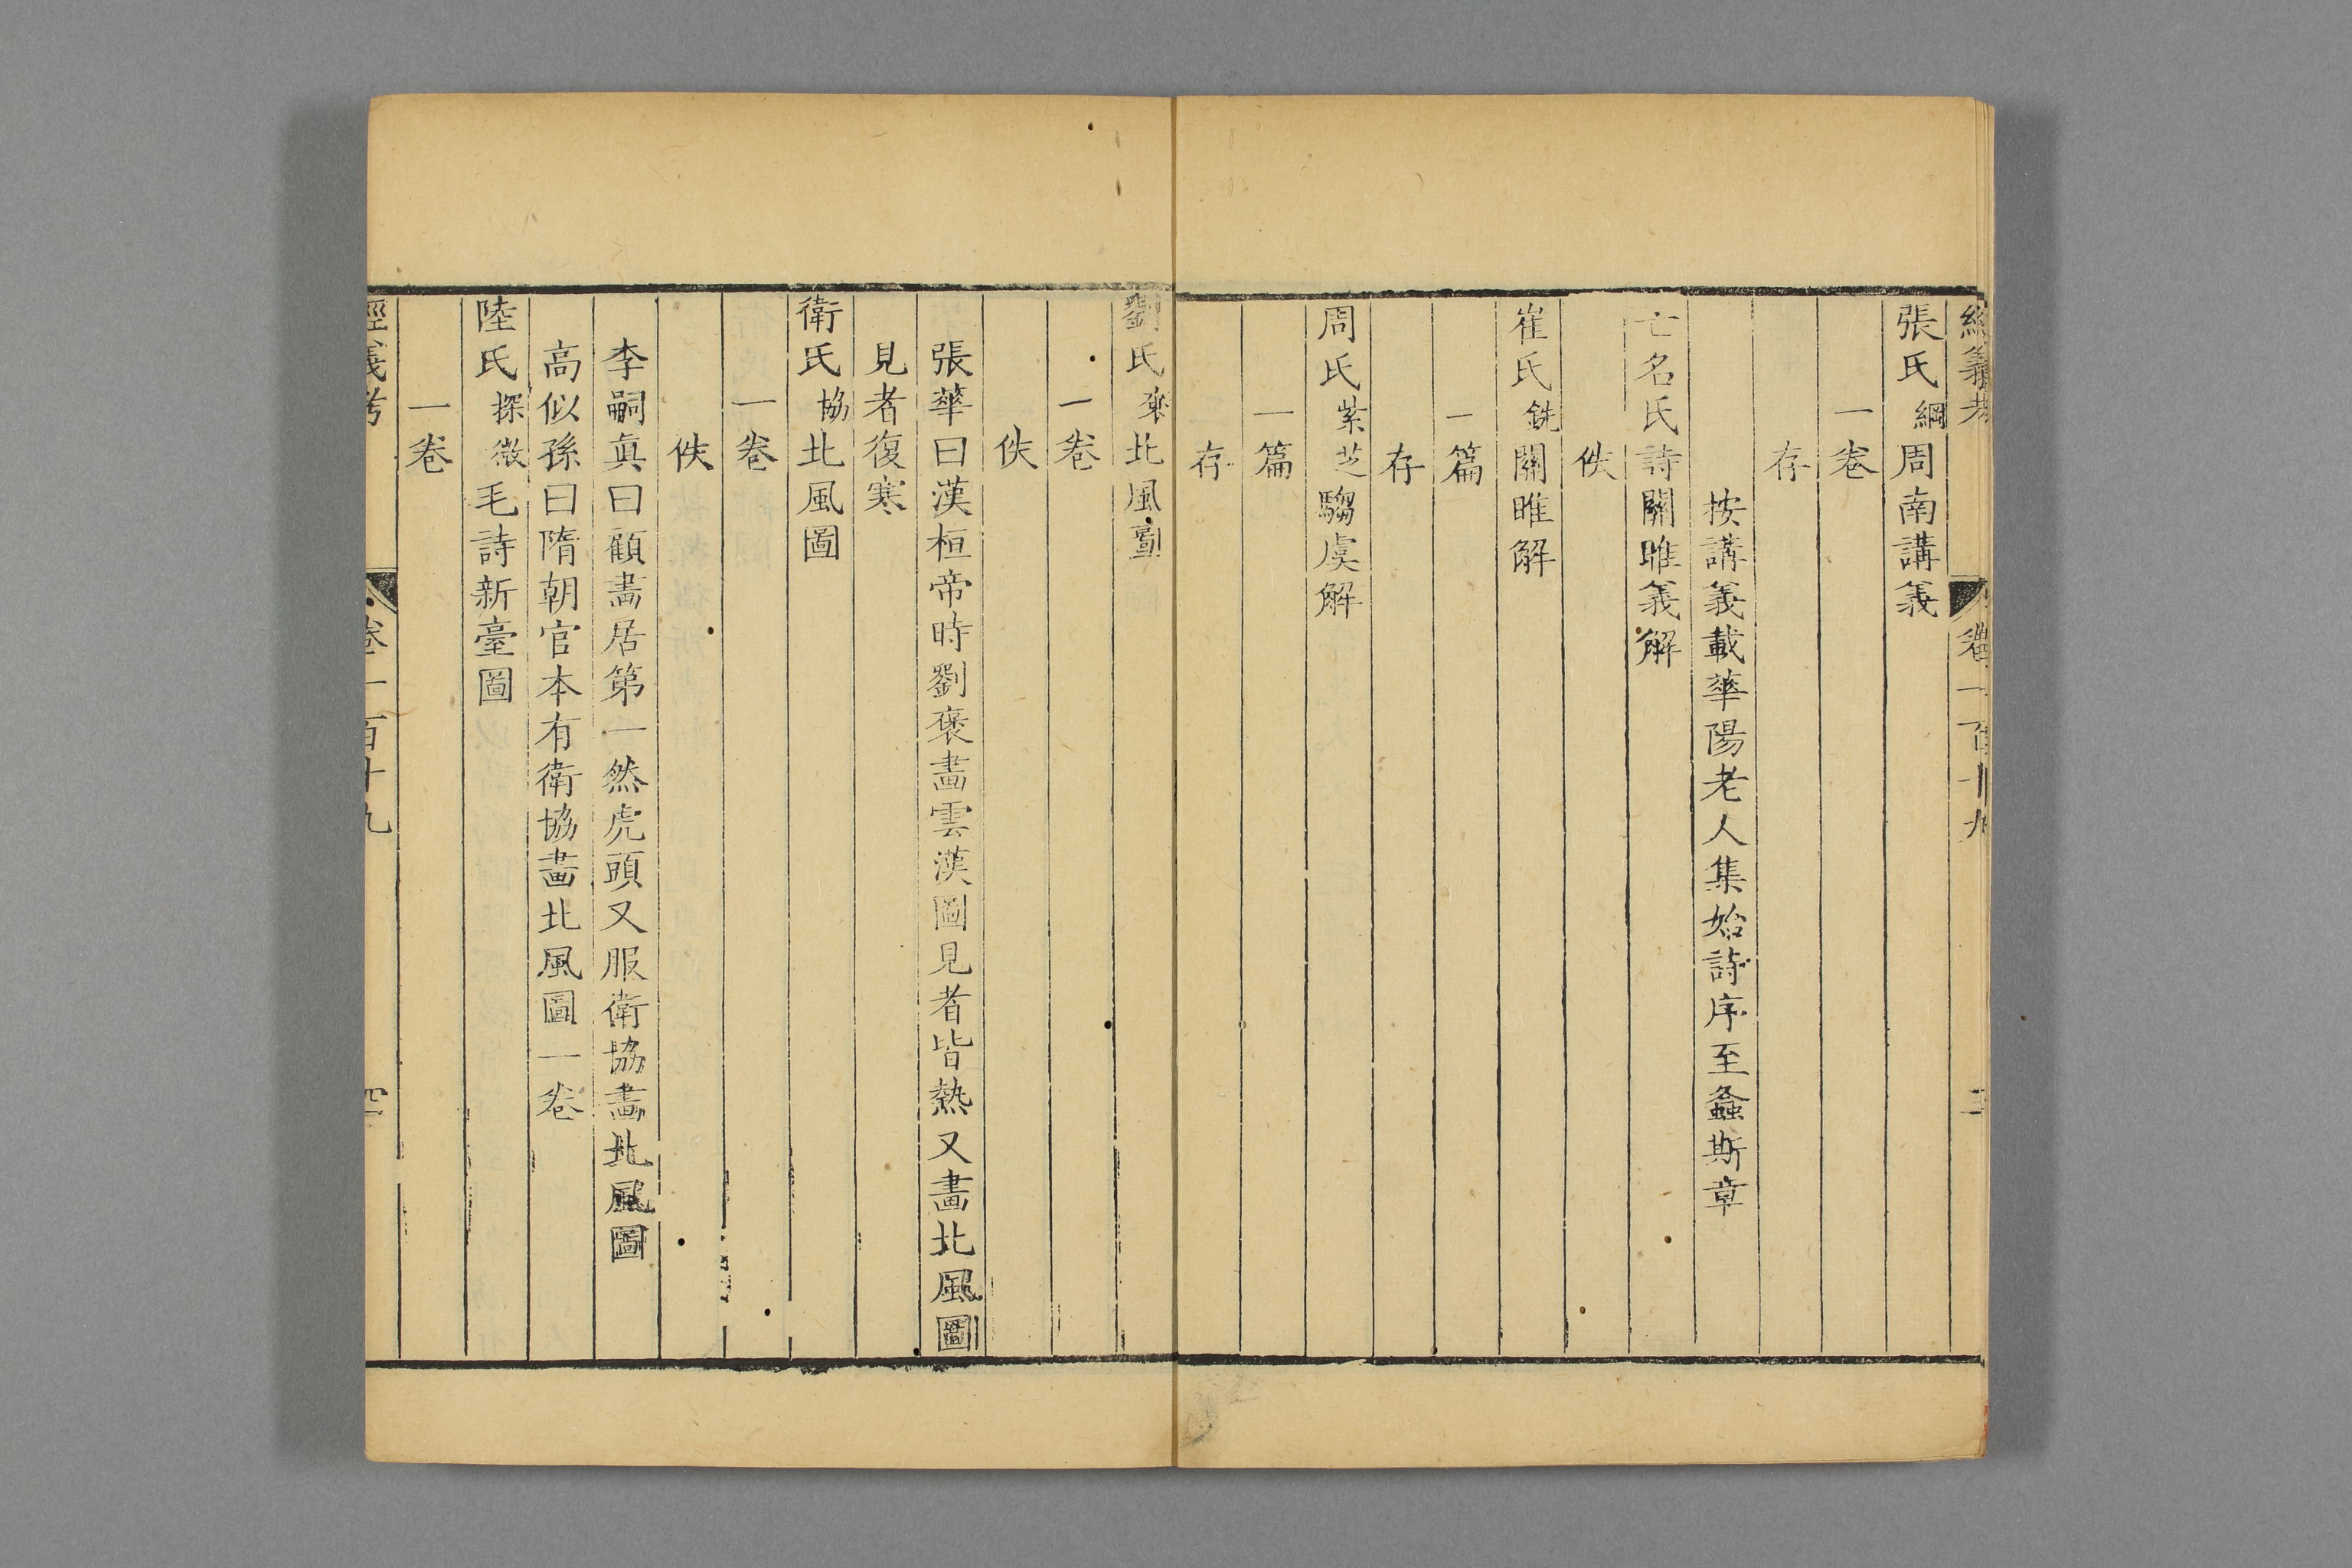 經義考 卷一百十九 三
張氏綱周南講義
一卷
存
按講義載華陽老人集始詩序至螽斯章
亡名氏詩關雎義解
佚
崔氏銑關雎解
一篇
存
周氏紫芝騶虞解
一篇
存
劉氏褒北風圖
一卷
佚
張華曰漢桓帝時劉褒畫雲漢圖見者皆熱又畫北風圖
見者復寒
衛氏協北風圖
一卷
佚
李嗣真曰顧畫居第一然虎頭又服衛協畫北風圖
高似孫曰隋朝官本有衛協畫北風圖一卷
陸氏探微毛詩新臺圖
一卷
經義考 卷一百十九 四